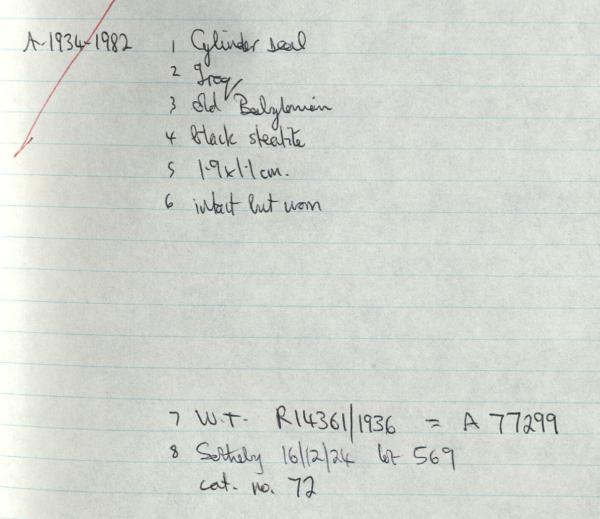 A-1934-1982 1 Cylinder seal
2 Iraq
3 Old Babylonian
4 black steatite
5 1.9x1.1cm.
6 intact but worn
7 W.T. R14361/1936 = A 77299
8 Sotheby 16/12/24 lot 569
cat. no. 72